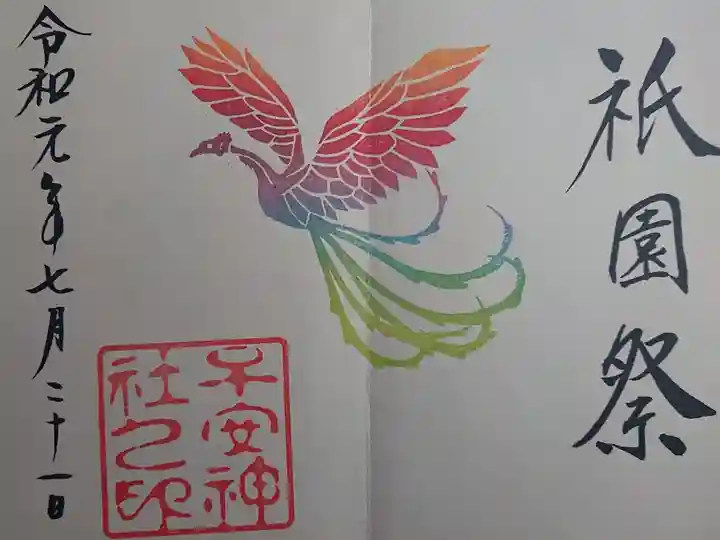 祇園祭
子安神
社之印
令和元年七月二十一日